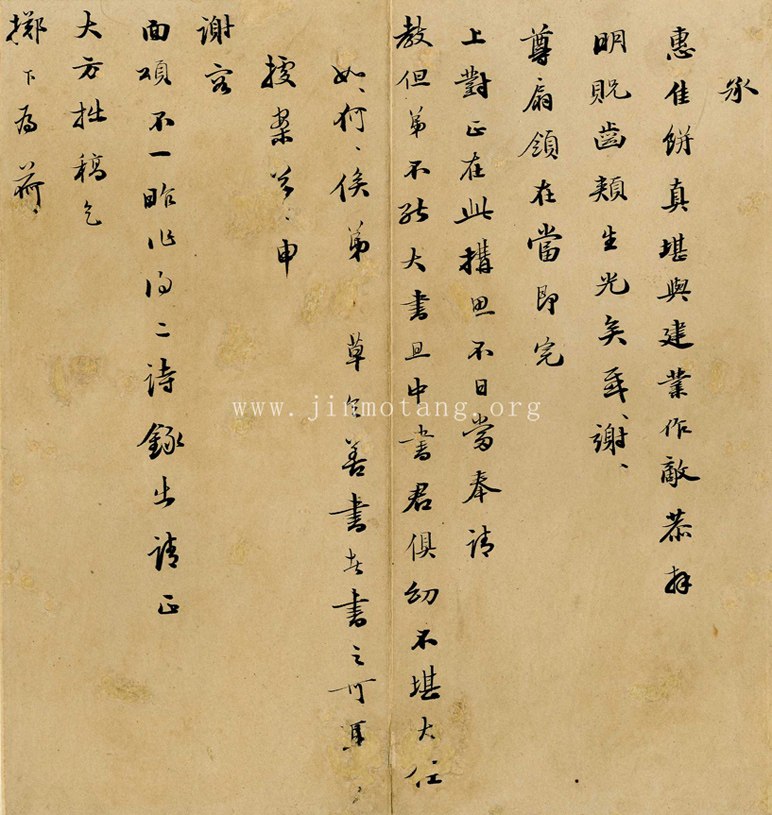 承
惠佳餅真堪與建業作敵恭拜
明貺齒頰生光矣感〻謝〻
尊扇領在當即完
上對正在此構思不日當奉請
教但弟不能大書且中書君俱幼不堪大任
如〻何〻俟弟草令善書者書之可耳〻
援筆 〻申
謝容
面頌不一昨作得二詩錄出請正
大方拙稿乞
擲下為荷〻
www.jinmotang.org